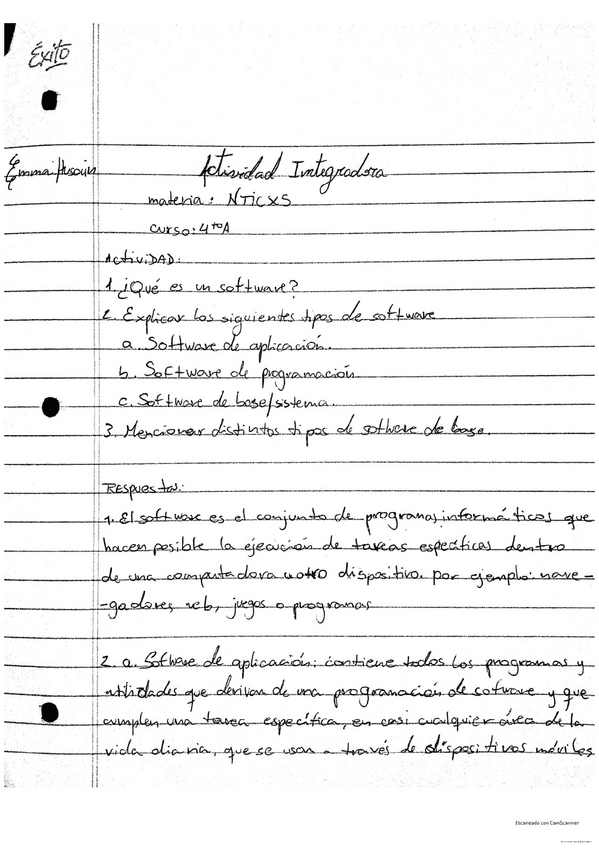 Éxito
Emma Husain Actividad Integradora
materia: NTICXS
curso: 4toA
ActiviDAD:
1. ¿Qué es un software?
2. Explicar los siguientes tipos de software
a. Software de aplicación.
b. Software de programación
c. Software de base/sistema.
3. Mencionar distintos tipos de software de base.
Respuestas:
1. El software es el conjunto de programas informáticos que
hacen posible la ejecución de tareas específicas dentro
de una computadora u otro dispositivo. por ejemplo: nave-
-gadores web, juegos o programas
2. a. Software de aplicación: contiene todos los programas y
utilidades que derivan de una programación de sotware y que
cumplen una tarea específica, en casi cualquier área de la
vida diaria, que se usan a través de dispositivos móviles
Escaneado con CamScanner